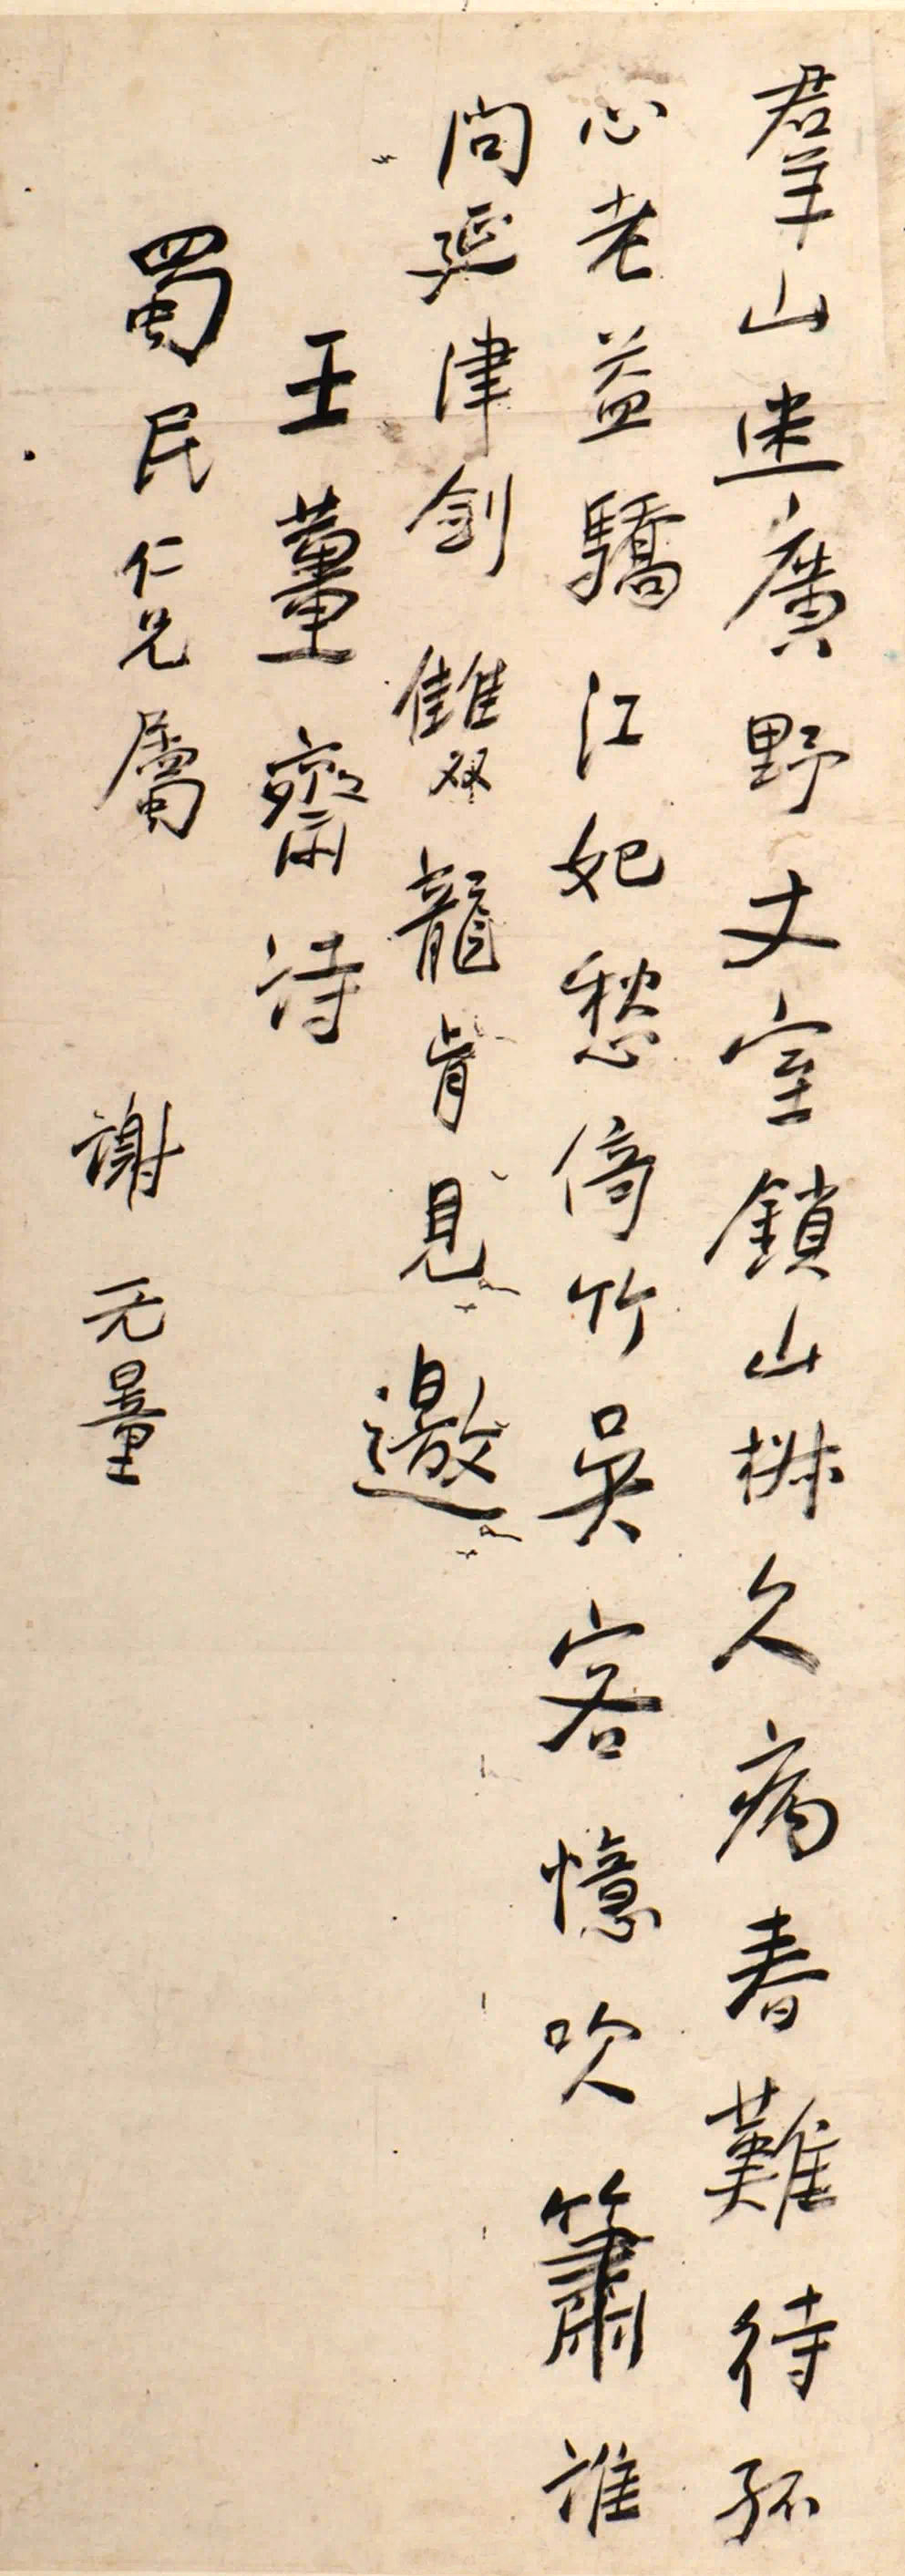 羣山廣野丈室鎖山椒久病春難待孤
心老益驕江妃愁倚竹吳客憶吹簫誰
問延津劍雙龍肯見邀
王薑齋詩
蜀民仁兄屬 謝无量